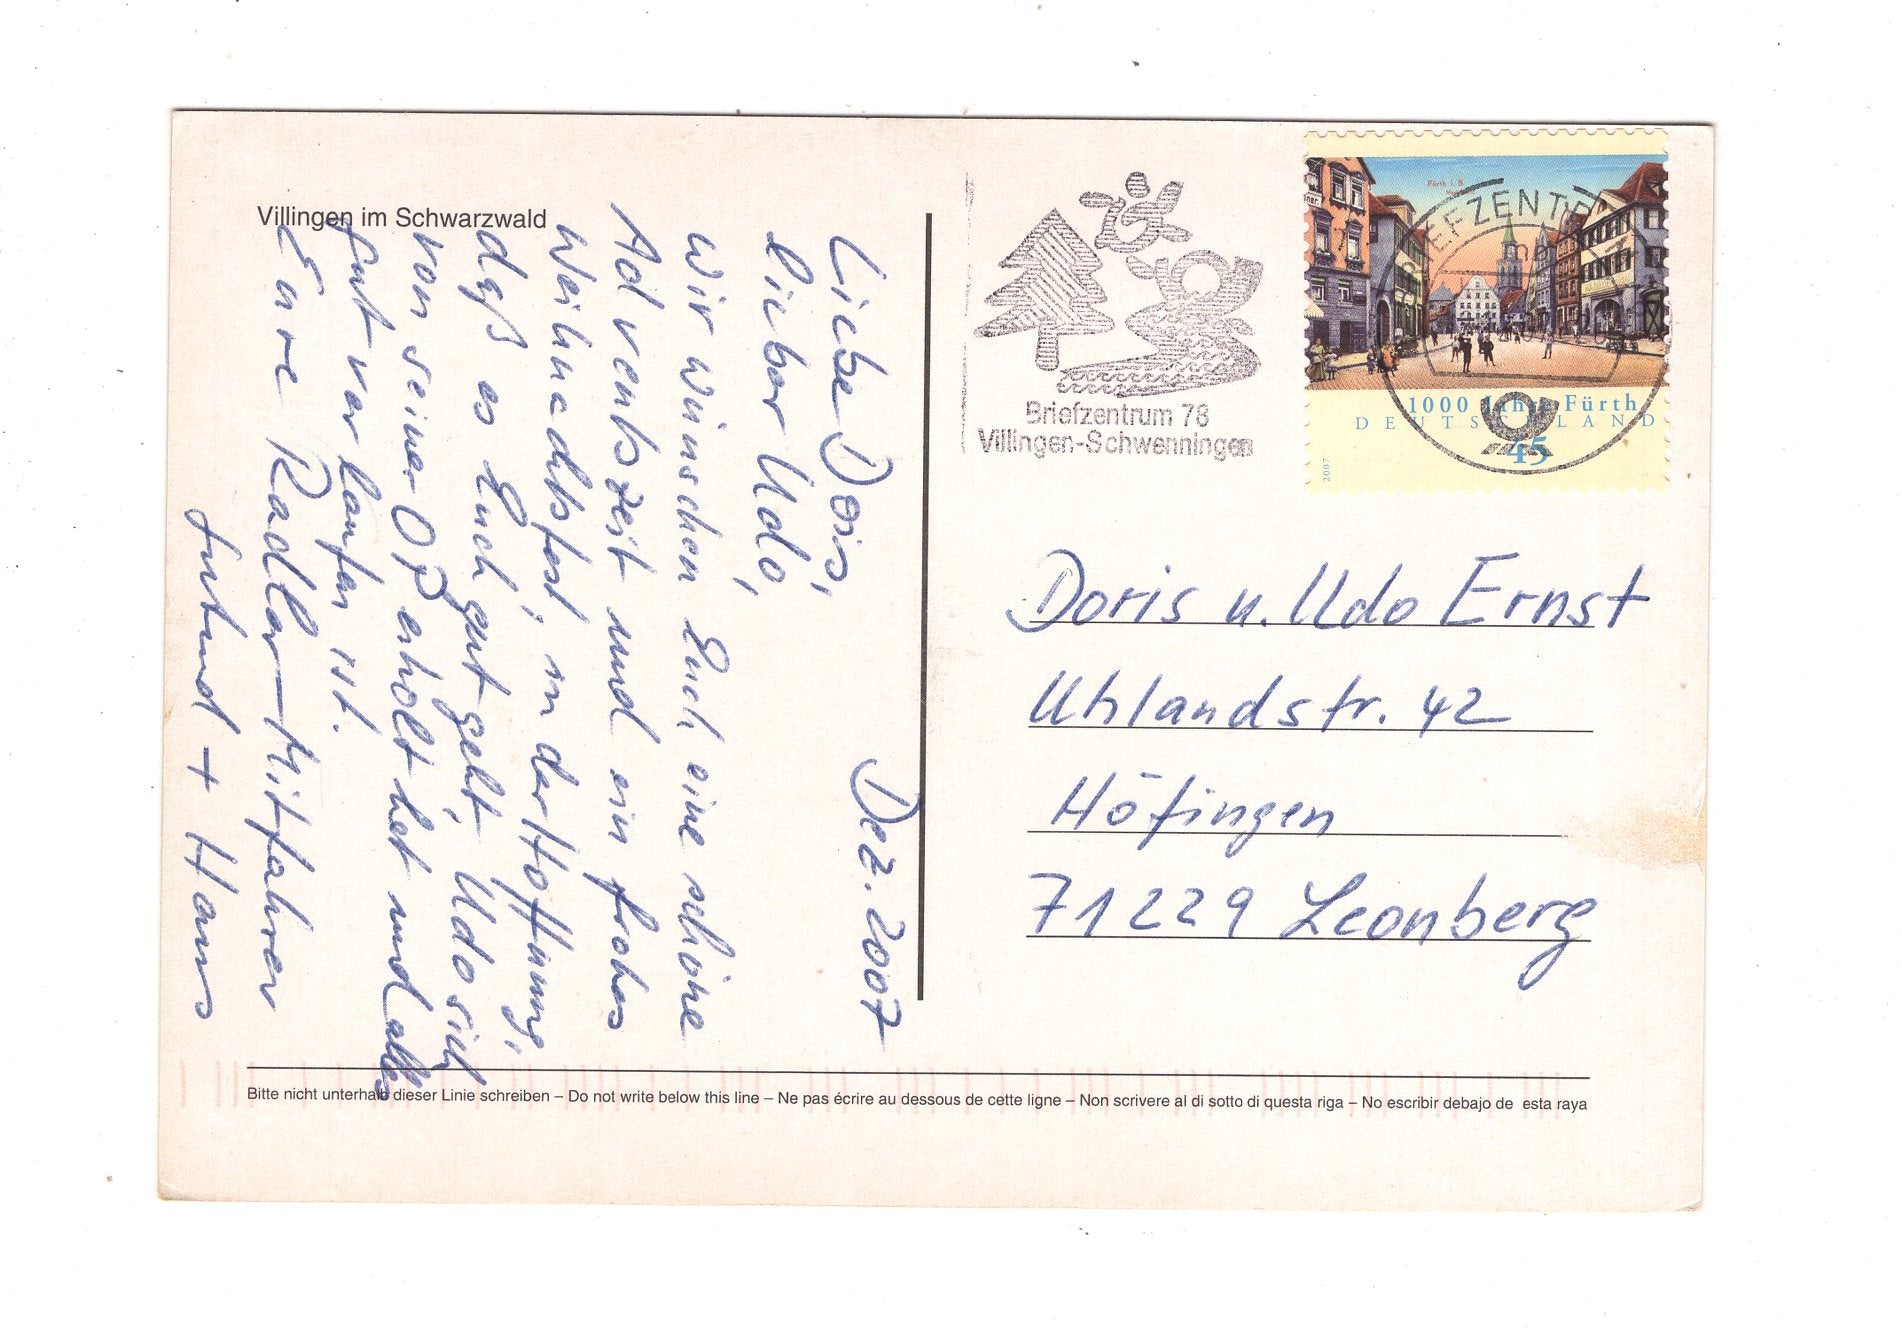 Villingen im Schwarzwald
Dez. 2007
Liebe Doris,
lieber Udo,
wir wünschen Euch eine schöne
Adventszeit und ein frohes
Weihnachtsfest, in der Hoffnung,
daß es Euch gut geht, Udo sich
von seiner OP erholt hat und alles
gut verlaufen ist.
Eure Radler-Mitfahrer
+ Hans
Briefzentrum 78
Villingen-Schwenningen
Fürth i. B.
1000 Jahre Fürth
DEUTSCHLAND
45
2007
BRIEFZENTRUM
Doris u. Udo Ernst
Uhlandstr. 42
Höfingen
71229 Leonberg
Bitte nicht unterhalb dieser Linie schreiben – Do not write below this line – Ne pas écrire au dessous de cette ligne – Non scrivere al di sotto di questa riga – No escribir debajo de esta raya